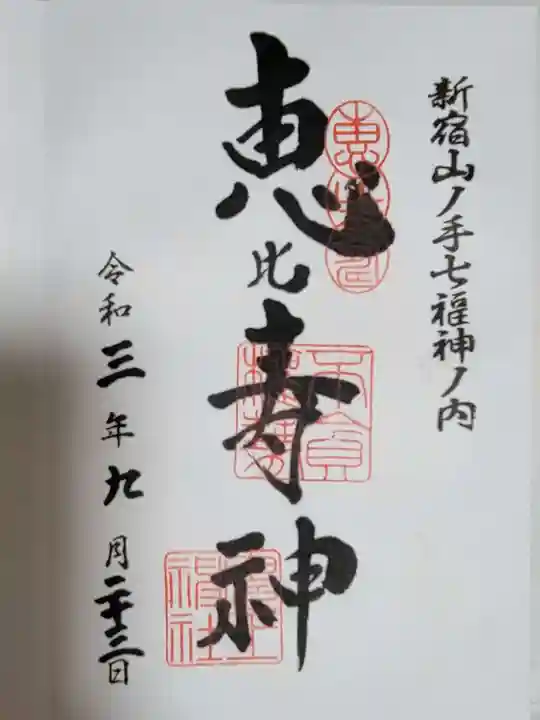 新宿山ノ手七福神ノ内
恵比寿神
令和三年九月二十三日